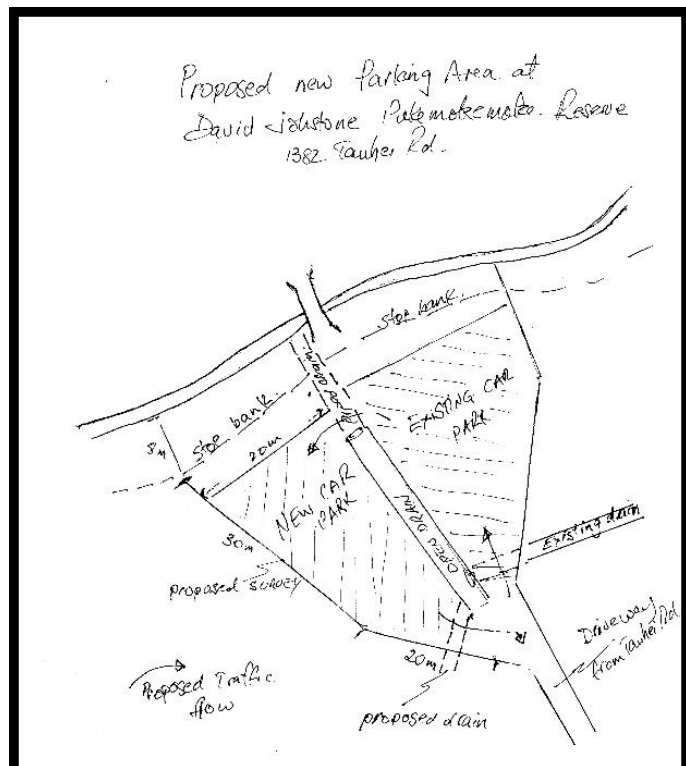 Proposed new Parking Area at
David Johstone Pukemokemoke Reserve
1382. Tauhei Rd.
Stop bank.
Stop bank.
8m
20m
EXISTING CAR
PARK
NEW CAR
PARK
OPEN DRAIN
30m
proposed SURVEY
Existing drain
Driveway
from Tauhei Rd
20m
Proposed Traffic
flow
proposed drain